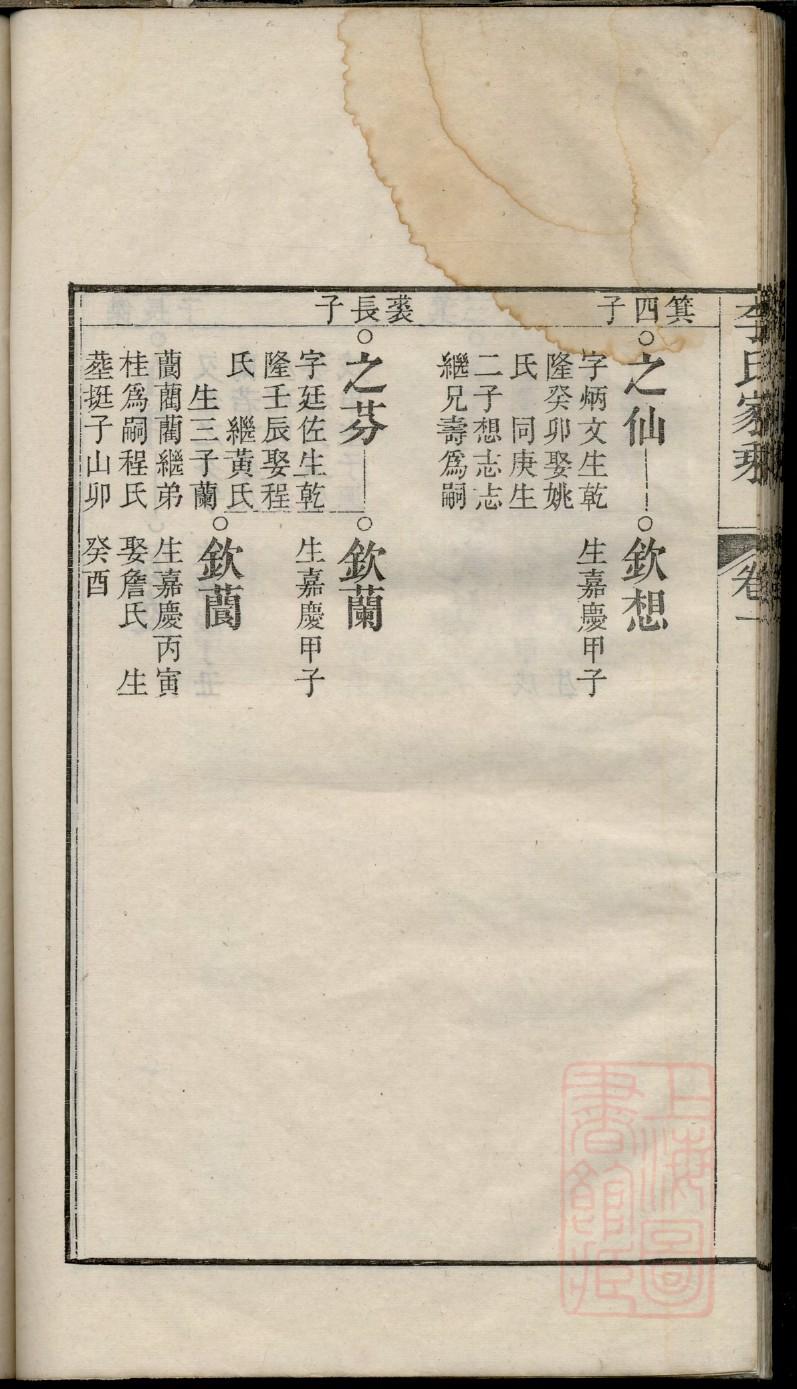 李氏家乘
卷一
箕四子
之仙
字炳文生乾
隆癸卯娶姚
氏 同庚生
二子想志志
繼兄壽爲嗣
欽想
生嘉慶甲子
裘長子
之芬
字廷佐生乾
隆壬辰娶程
氏 繼黃氏
生三子蘭
蕳藺藺繼弟
桂爲嗣程氏
塟挺子山卯
欽蘭
生嘉慶甲子
欽蕳
生嘉慶丙寅
娶詹氏 生
癸酉
上海圖
書館藏